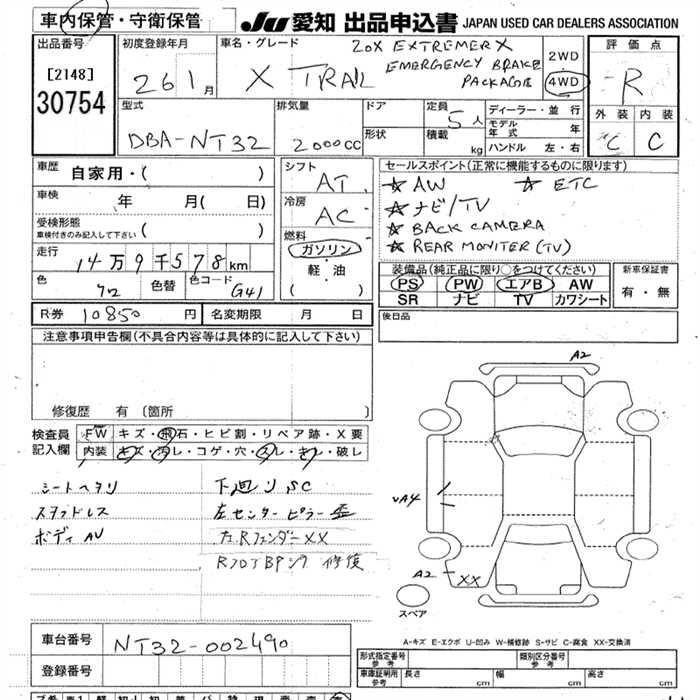 車内保管・守衛保管
JU 愛知 出品申込書 JAPAN USED CAR DEALERS ASSOCIATION
出品番号
[2148]
30754
初度登録年月
26 1月
車名・グレード
X TRAIL
20X EXTREMER X
EMERGENCY BRAKE
PACKAGE
2WD
4WD
評価点
R
外装 内装
C C
型式
DBA-NT32
排気量
2000cc
ドア
形状
定員
5人
積載
kg
ディーラー・並行
モデル年式 年
ハンドル 左・右
車歴 自家用・( )
車検 年 月( 日)
受検形態
車検付きのみ記入して下さい ( )
走行 14万9千578km
色 色替 色コード G41
シフト
AT
冷房
AC
燃料
ガソリン
軽・油
( )
セールスポイント(正常に機能するものに限ります)
☆ AW ☆ ETC
☆ ナビ/TV
☆ BACK CAMERA
☆ REAR MONITER (TV)
装備品(純正品に限り○をつけてください)
PS PW エアB AW
SR ナビ TV カワシート
新車保証書
有・無
R券 10850円 名変期限 月 日
後日品
注意事項申告欄(不具合内容等は具体的に記入して下さい)
修復歴 有 〔箇所 〕
検査員
記入欄
FW キズ・飛石・ヒビ割・リペア跡・X要
内装 キズ・汚レ・コゲ・穴・スレ・キレ・破レ
シートヘタリ 下廻りSC
スタッドレス 左センターピラー歪
ボディAU 左RフェンダーXX
修復
A2
A4
A2
XX
スペア
A-キズ E-エクボ U-凹み W-補修跡 S-サビ C-腐食 XX-交換済
車台番号 NT32-002490
登録番号
形式指定番号 参考
類別区分番号 参考
車庫証明用 参考 長さ cm 幅 cm 高さ cm